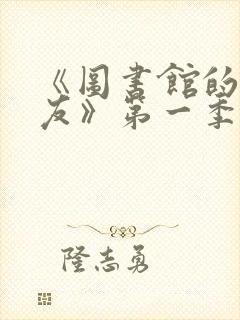 《圖書館的
友》第一季
隆志勇